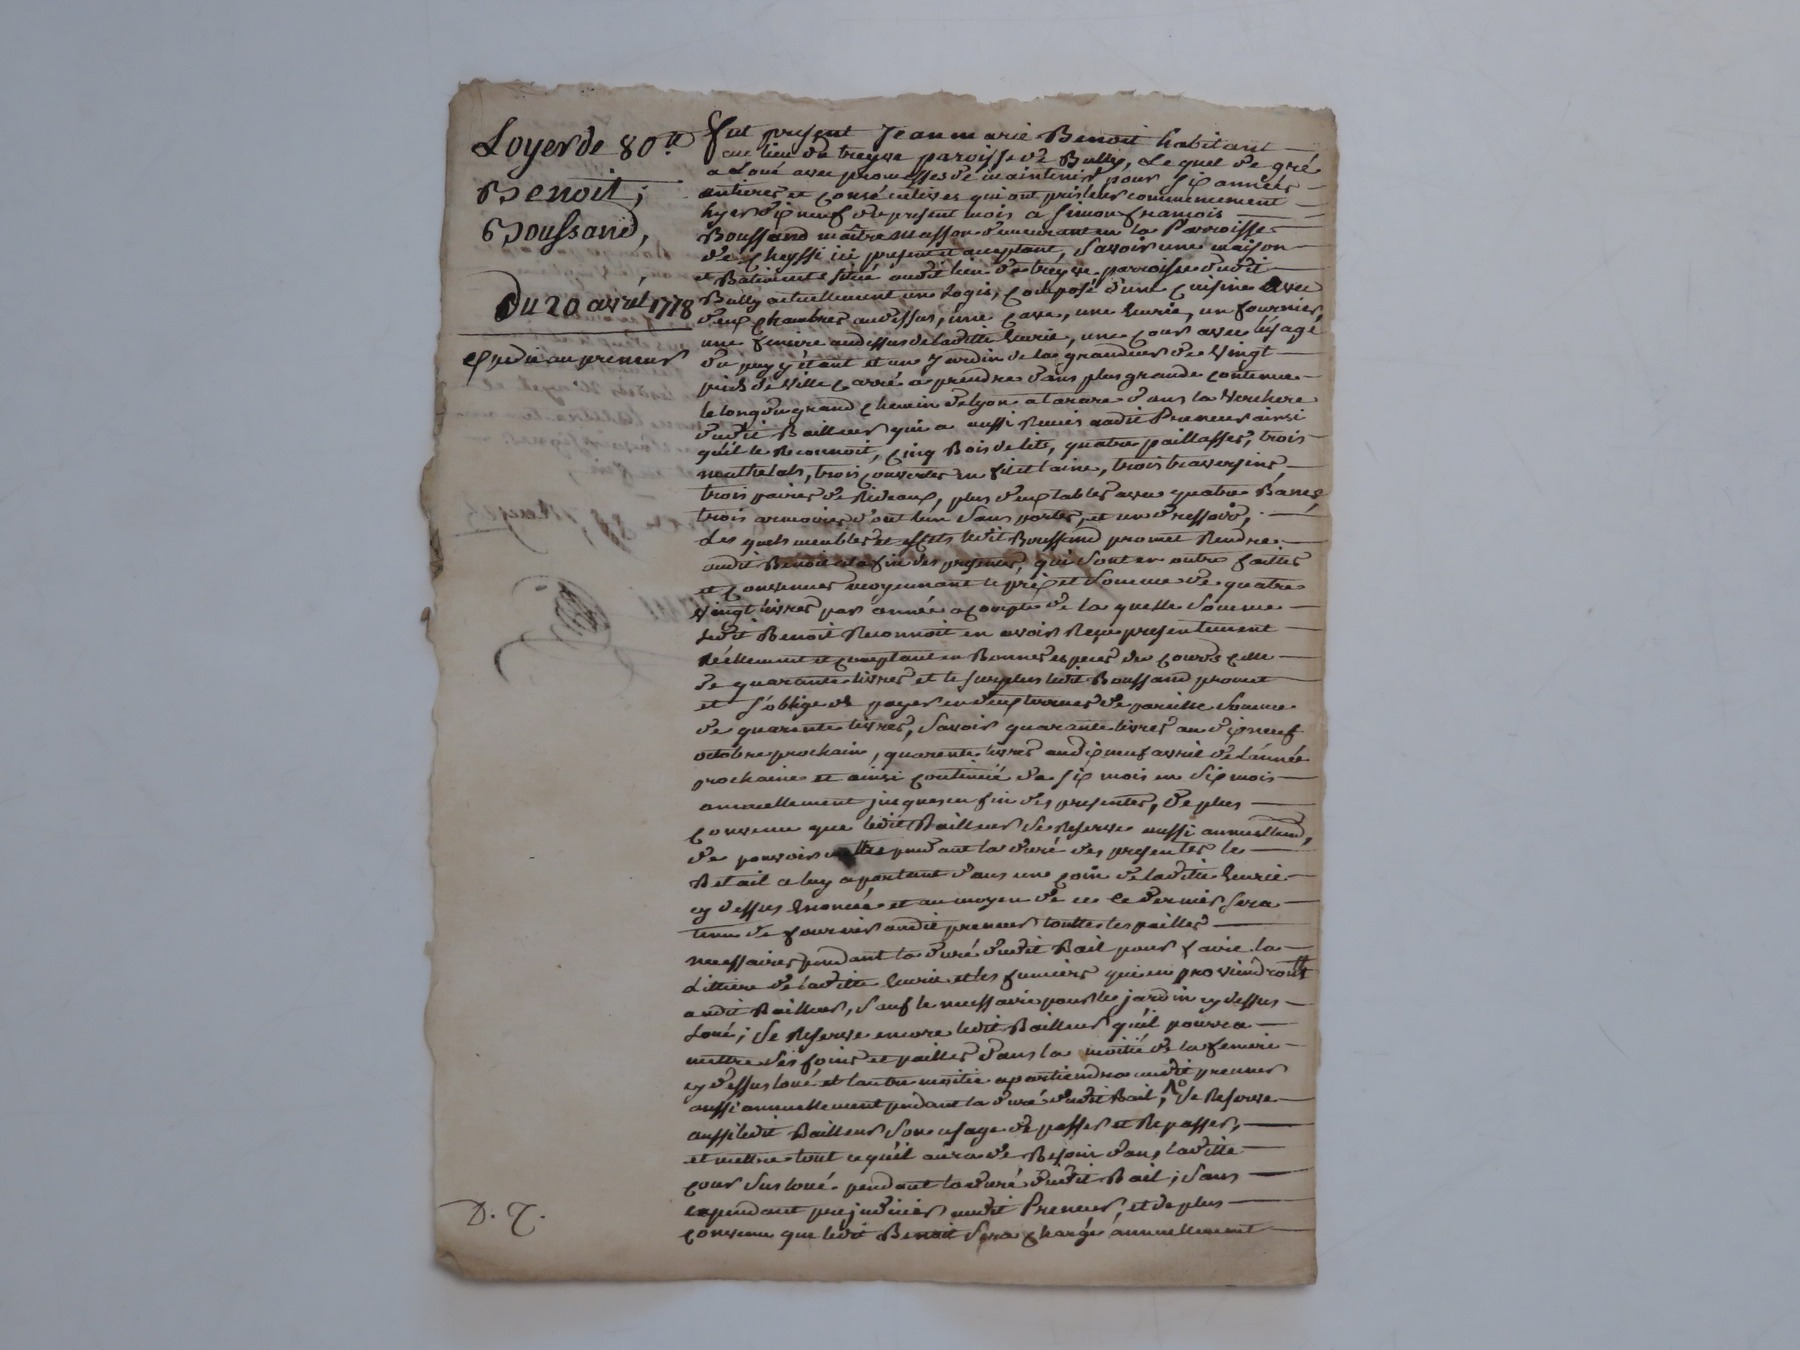 Loyer de 80.tt
Benoit;
Boussand,
Du 20 avril 1778
Expedié au preneur
Fut present Jean marie Benoit habitant
au lieu du treyve paroisse de Bully, Lequel de gré
a Loué avec promesses de maintenir pour six années
entieres et consécutives qui ont pris leur commencement
hyer dix neuf du present mois a Simon francois
Boussand maître masson demeurant en la Parroisse
de Chessi ici present et acceptant, Savoir une maison
et Batiments situé audit lieu du treyve parroisse dudit
Bully actuellement un Logis, composé d'une cuisine avec
deux chambres au dessus, une cave, une Ecurie, un fournier,
une feniere au dessus de laditte Ecurie, une cour avec l'usage
du puy y étant et un Jardin de la grandeur de vingt
pieds de ville carré a prendre dans plus grande contenue
le long du grand chemin de lyon a tarare dans la verchere
dudit Bailleur qui a aussi Remis audit Preneur ainsi
qu'il le Reconnoit, cinq Bois de lits, quatre paillasses, trois
matthelats, trois couvertes en fil et laine, trois traversins,
trois paires de Rideaux, plus deux tables avec quatre Bancs
trois armoires dont l'un Sans portes, et un dressoir,
Les quels meubles et effets ledit Boussand promet Rendre
audit Benoit a la fin des presentes, qui sont en outre faittes
et convenues moyennant le prix et Somme de quatre
vingt livres par année a compte de la quelle Somme
ledit Benoit Reconnoit en avoir Reçu presentement
Réellement et comptant en Bonnes especes du cours celle
de quarante livres et le surplus ledit Boussand promet
et s'oblige de payer en deux termes de pareille Somme
de quarente livres, Savoir quarante livres au dix neuf
octobre prochain, quarente livres au dix neuf avril de l'année
prochaine et ainsi continué de six mois en six mois
annuellement jusques en fin des presentes, de plus
convenu que ledit Bailleur se Reserve aussi annuellemt,
de pouvoir mettre pendant la duré des presentes le
Betail a luy apartenant dans une coin de laditte Ecurie
cy dessus Enoncée, et au moyen de ce ce dernier sera
tenu de fournir audit preneur touttes les pailles
necessaires pendant la duré dudit Bail pour faire la
Littiere de laditte Ecurie et les fumiers qui en proviendront
audit Bailleur, sauf le necessaire pour le jardin cy dessus
Loué; se Reserve encore ledit Bailleur qu'il pourra
mettre des foins et pailles dans la moitié de la feniere
cy dessus loué et l'autre moitie apartiendra audit preneur
aussi annuellement pendant la duré dudit Bail, se Reserve
aussi ledit Bailleur son usage de passer et Repasser,
et mettre tout ce qu'il aura de Besoin dans laditte
cour sus loué pendant la duré dudit Bail; sans
cependant prejudicier audit Preneur, et de plus
convenu que ledit Benoit sera chargé annuellement
D. T.